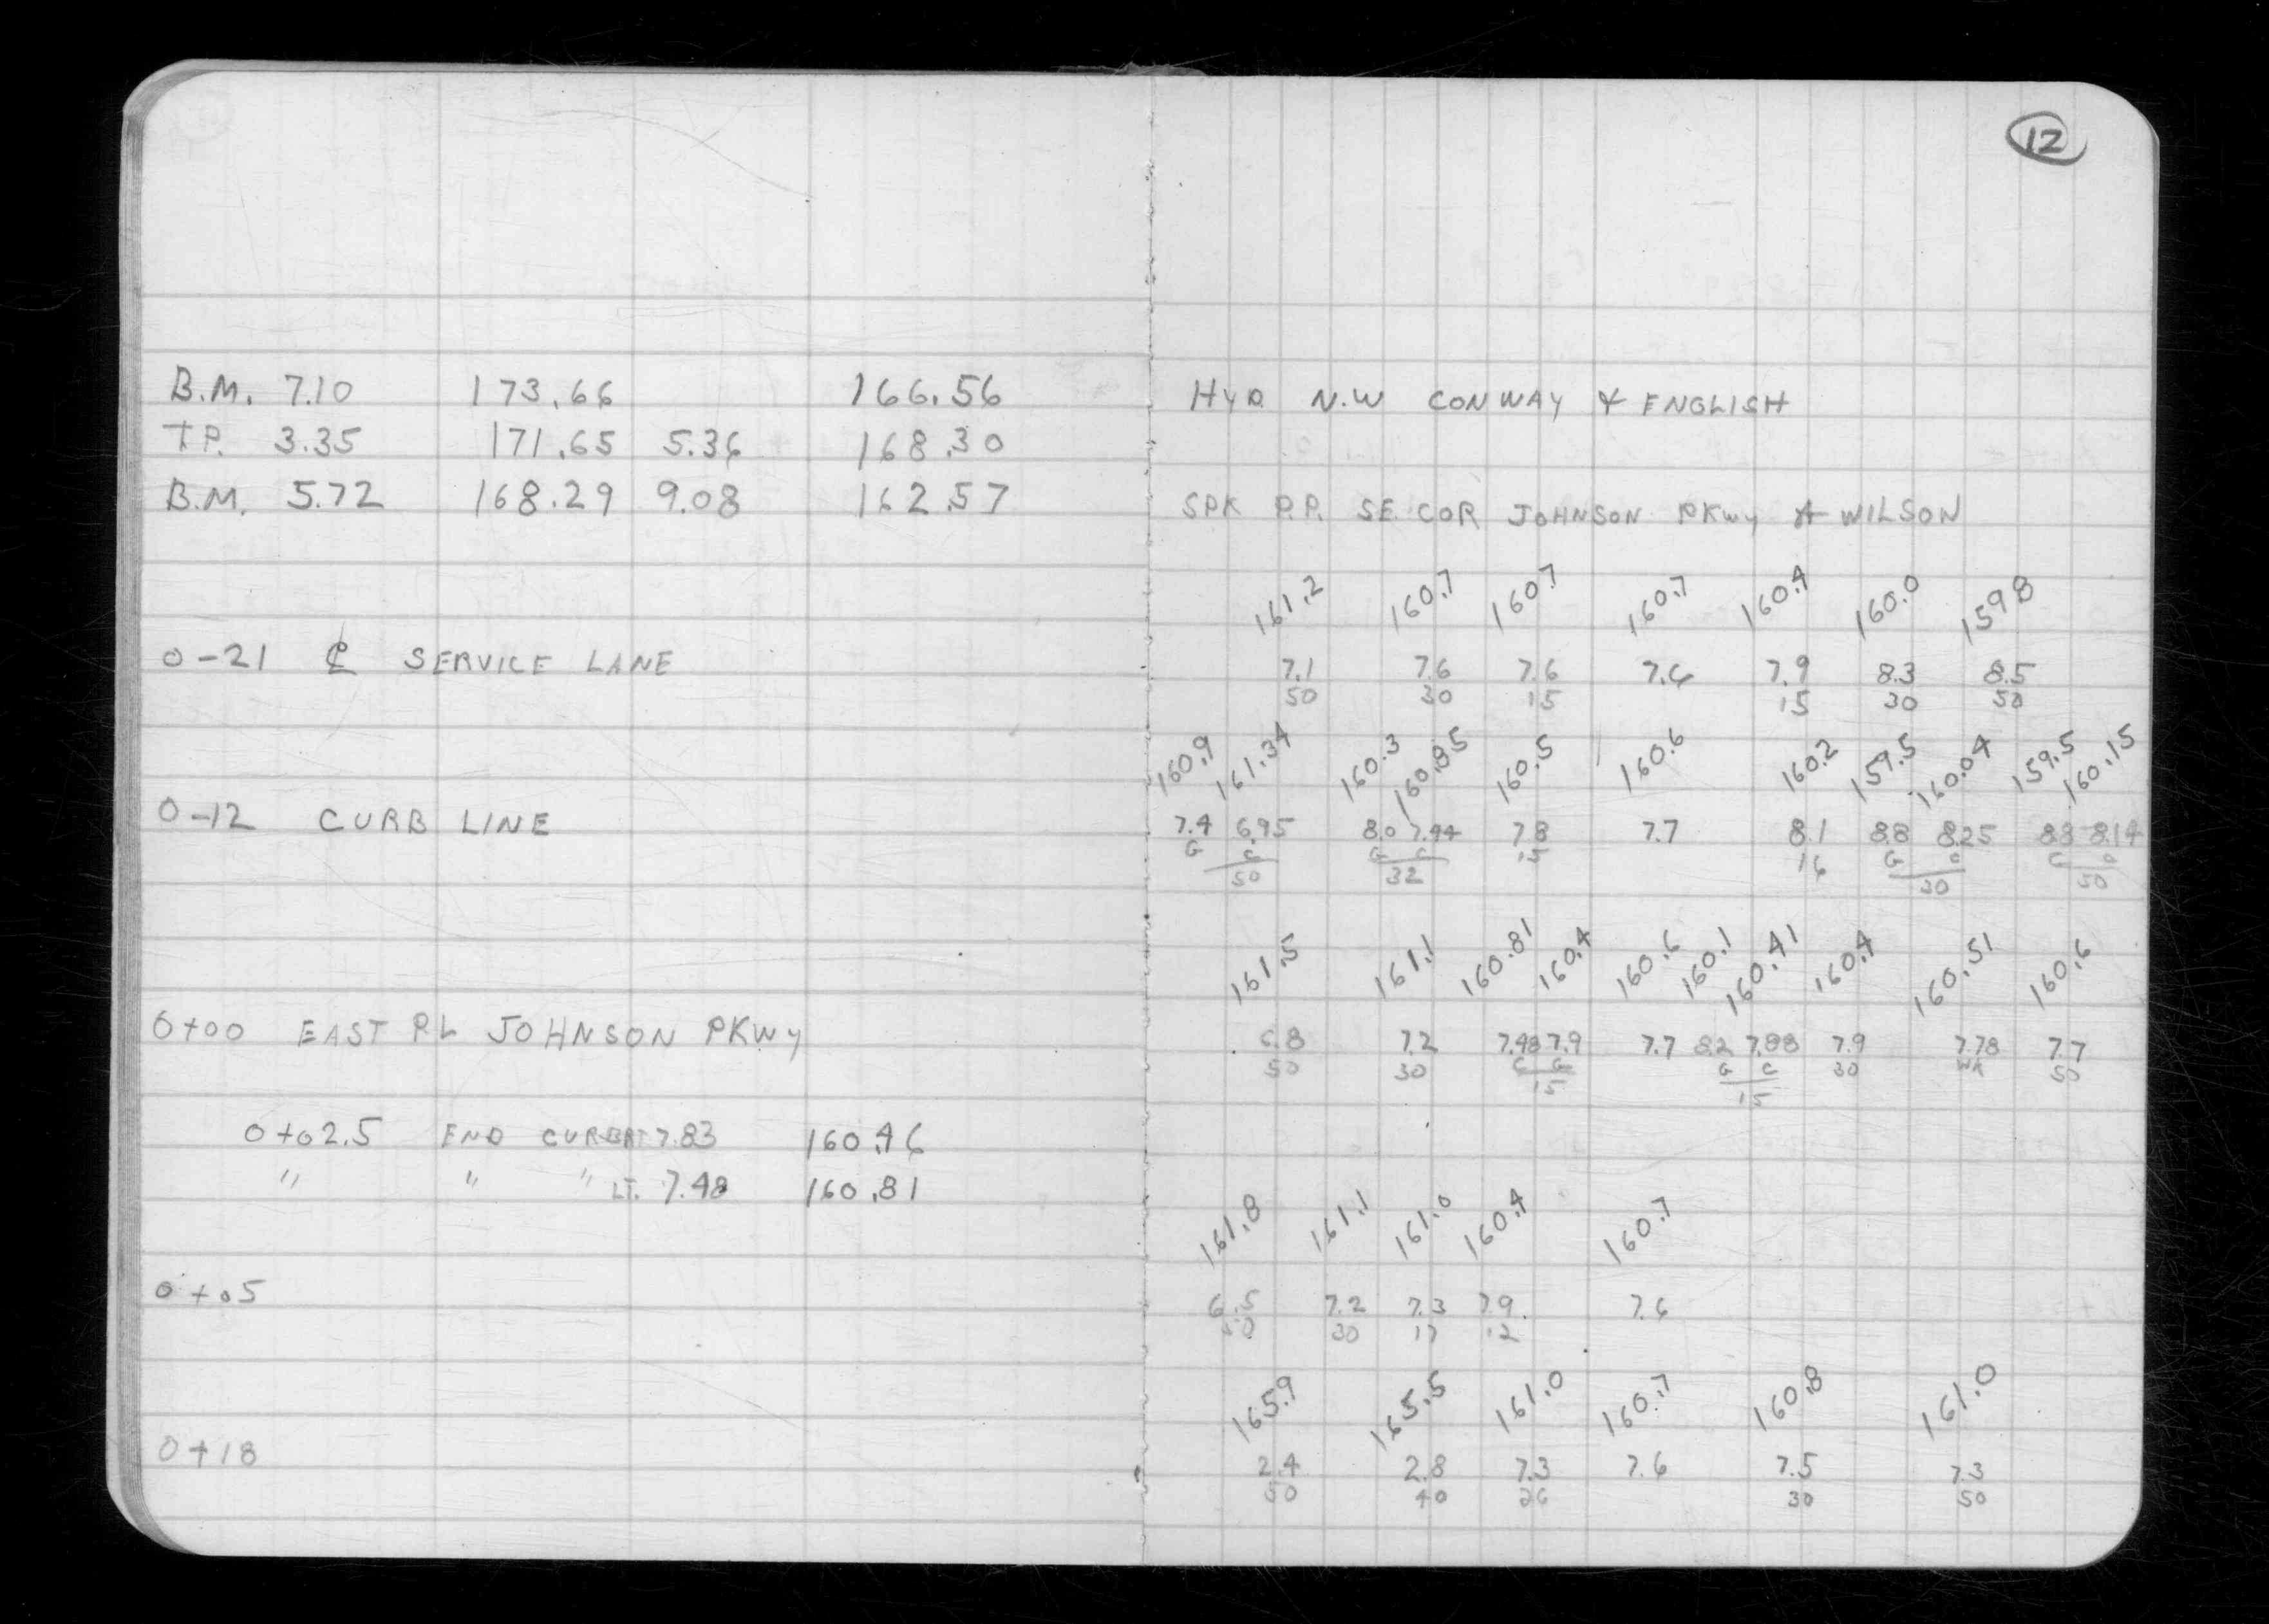 12
B.M. 7.10 173.66 166.56 HYD. N.W CONWAY & ENGLISH
T.P. 3.35 171.65 5.36 168.30
B.M. 5.72 168.29 9.08 162.57 SPK P.P. SE. COR JOHNSON PKWY & WILSON
161.2 160.7 160.7 160.7 160.4 160.0 159.8
0-21 ℄ SERVICE LANE 7.1 7.6 7.6 7.6 7.9 8.3 8.5
50 30 15 15 30 50
160.9 161.34 160.3 160.85 160.5 160.6 160.2 159.5 160.04 159.5 160.15
0-12 CURB LINE 7.4 6.95 8.0 7.44 7.8 7.7 8.1 8.8 8.25 8.8 8.14
G C G C 15 16 G C G C
50 32 30 50
161.5 161.1 160.81 160.4 160.6 160.1 160.41 160.4 160.51 160.6
0+00 EAST P.L JOHNSON PKWY 6.8 7.2 7.48 7.9 7.7 8.2 7.88 7.9 7.78 7.7
50 30 C G G C 30 WK 50
15 15
0+02.5 END CURB RT 7.83 160.46
" " " LT. 7.48 160.81
161.8 161.1 161.0 160.4 160.7
0+05 6.5 7.2 7.3 7.9 7.6
50 30 17 12
165.9 165.5 161.0 160.7 160.8 161.0
0+18 2.4 2.8 7.3 7.6 7.5 7.3
50 40 26 30 50